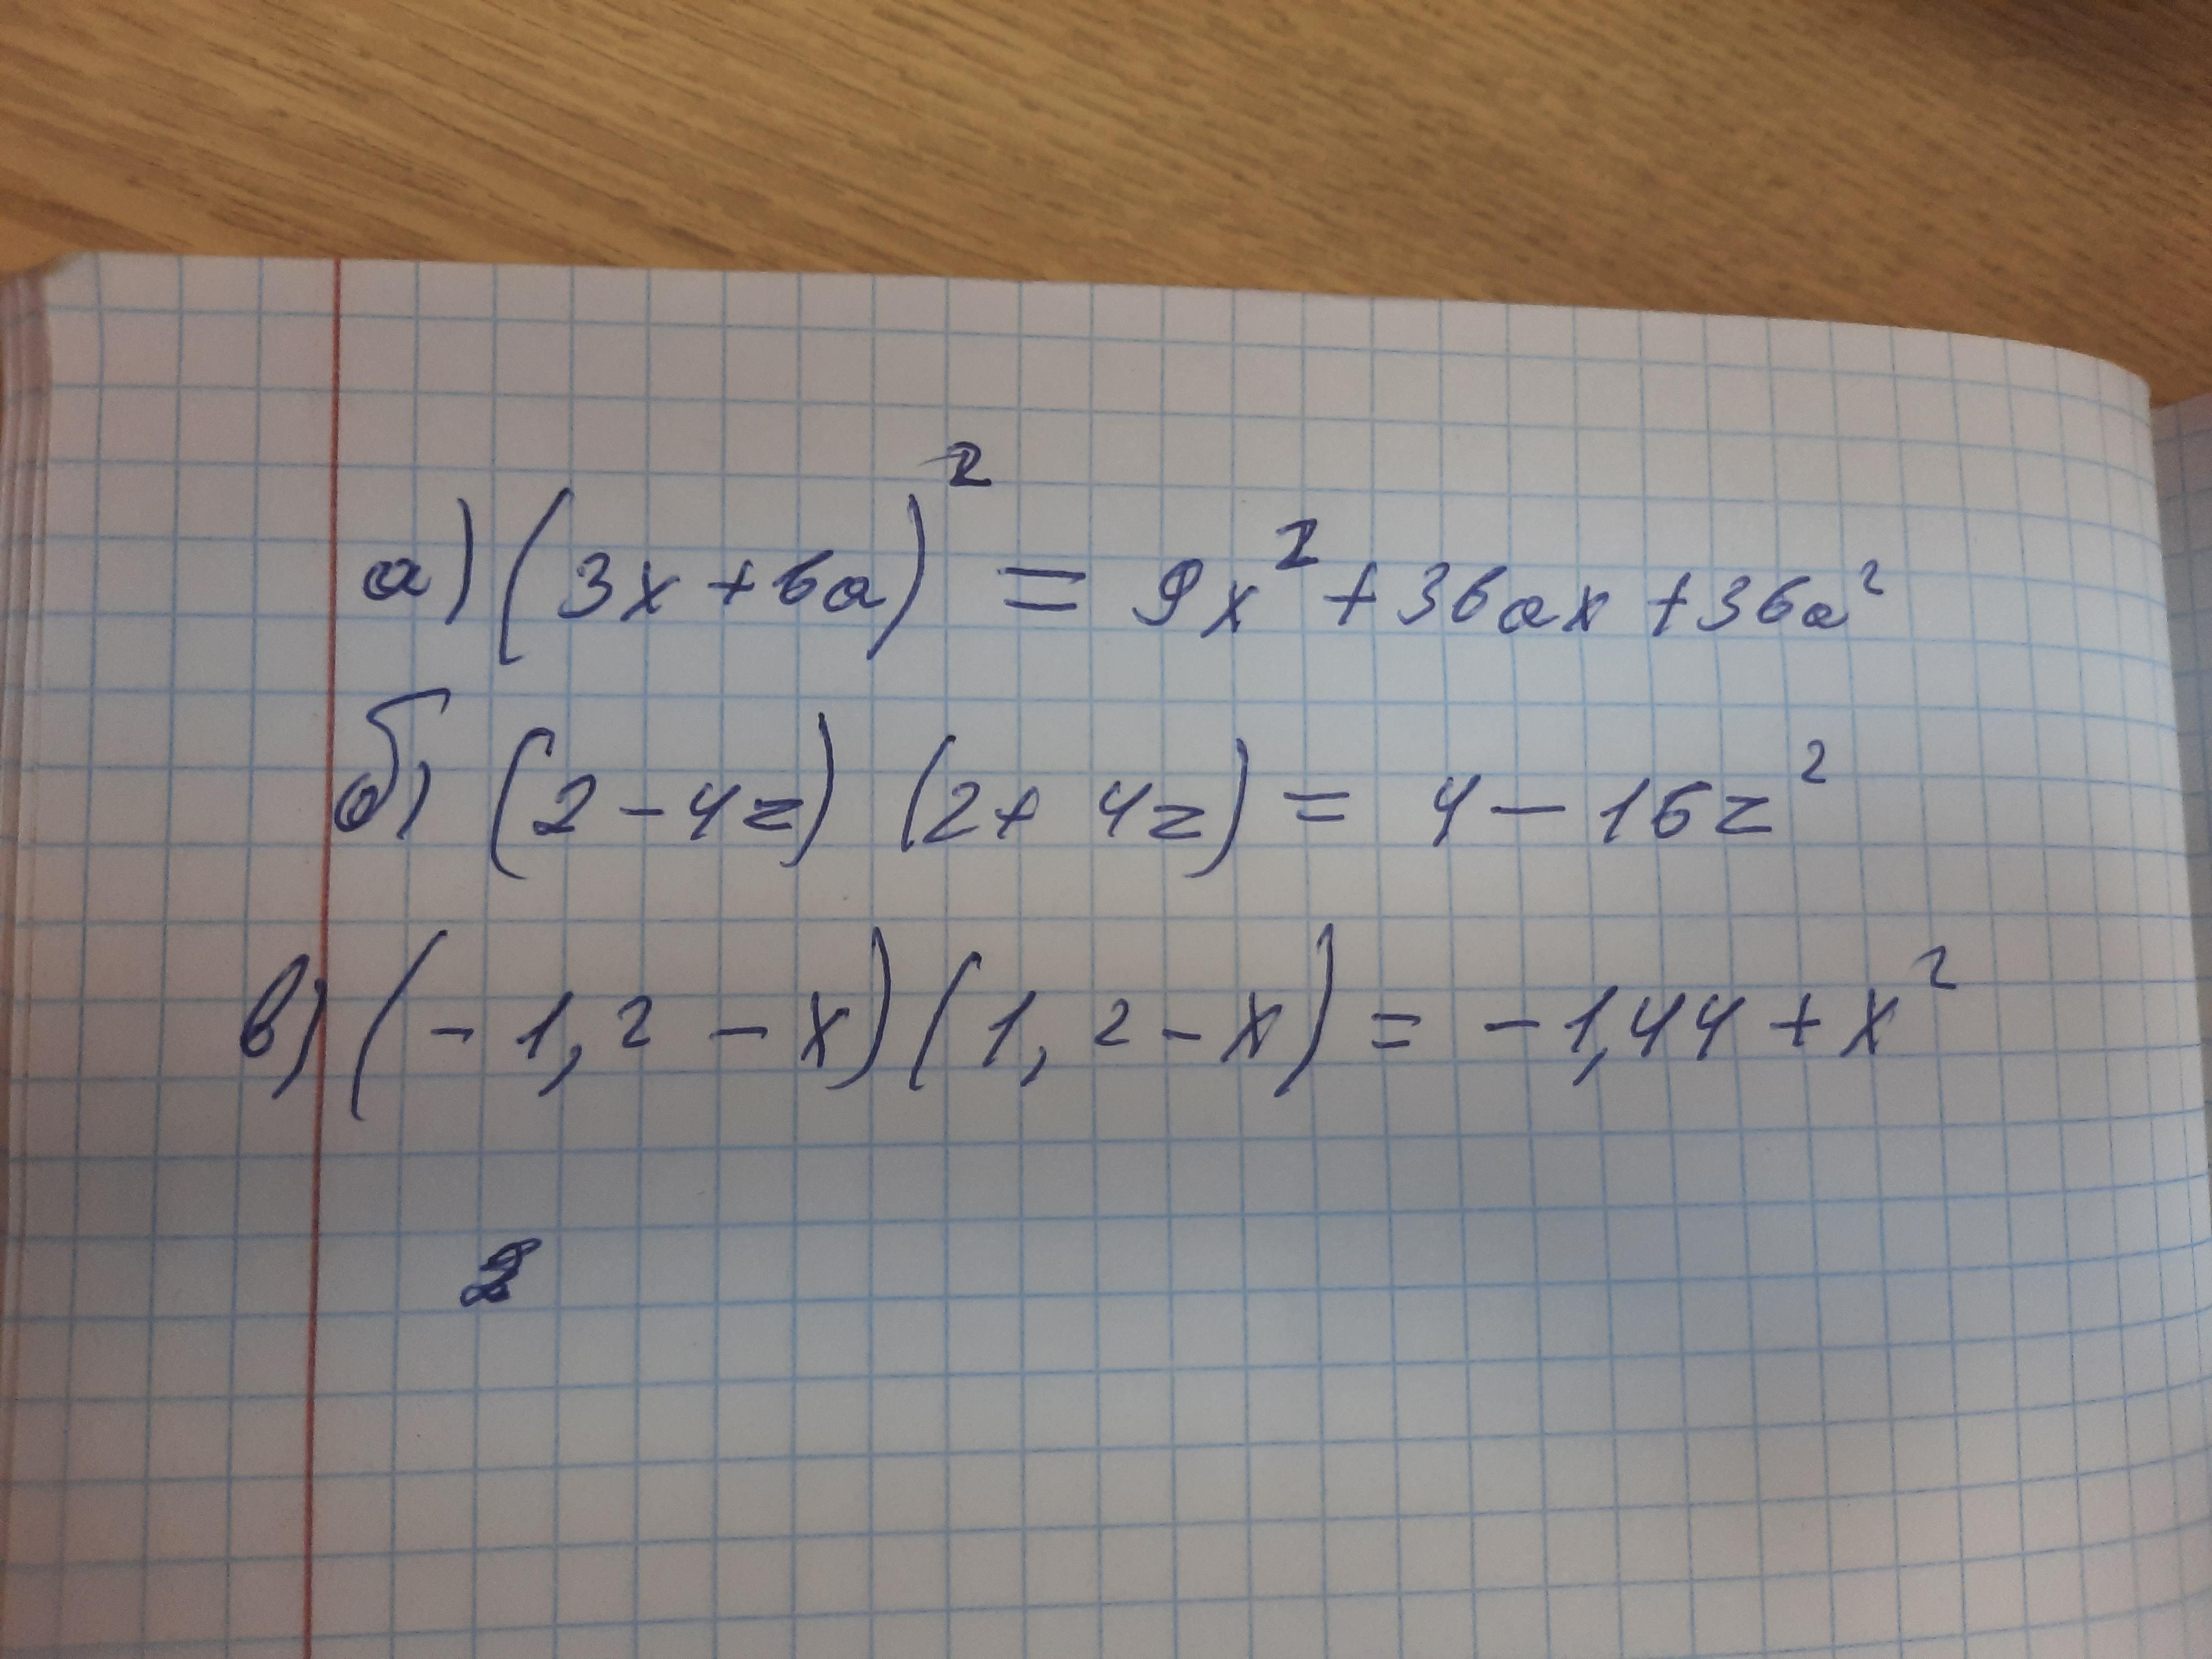 а) (3x+6a)² = 9x²+36ax+36a²
б) (2-4z) (2+4z) = 4-16z²
в) (-1,2-x)(1,2-x) = -1,44+x²
2